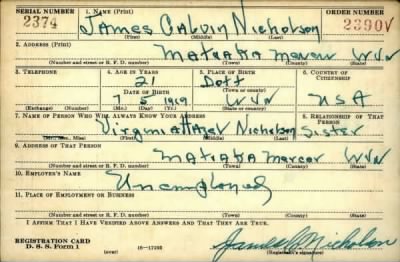 SERIAL NUMBER 1. NAME (Print) ORDER NUMBER
2374 James Calvin Nicholson 2390V
(First) (Middle) (Last)
2. ADDRESS (Print)
Matoaka Mercer W Va
(Number and street or R. F. D. number) (Town) (County) (State)
3. TELEPHONE 4. AGE IN YEARS 5. PLACE OF BIRTH 6. COUNTRY OF CITIZENSHIP
21 Dott
DATE OF BIRTH (Town or county)
7 5 1919 W Va USA
(Exchange) (Number) (Mo.) (Day) (Yr.) (State or country)
7. NAME OF PERSON WHO WILL ALWAYS KNOW YOUR ADDRESS 8. RELATIONSHIP OF THAT PERSON
Virginia Hazel Nicholson Sister
(Mr., Mrs., Miss) (First) (Middle) (Last)
9. ADDRESS OF THAT PERSON
Matoaka Mercer W Va
(Number and street or R. F. D. number) (Town) (County) (State)
10. EMPLOYER'S NAME
Unemployed
11. PLACE OF EMPLOYMENT OR BUSINESS
(Number and street or R. F. D. number) (Town) (County) (State)
I AFFIRM THAT I HAVE VERIFIED ABOVE ANSWERS AND THAT THEY ARE TRUE.
REGISTRATION CARD
D. S. S. Form 1 16—17105 James C Nicholson
(Registrant's signature)